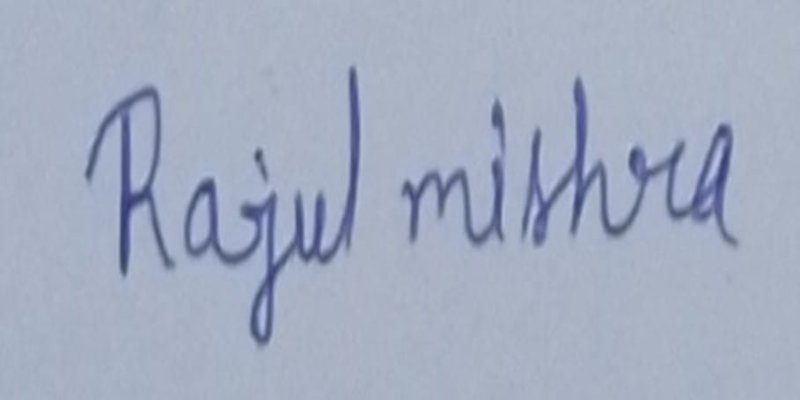 Rajul mishra